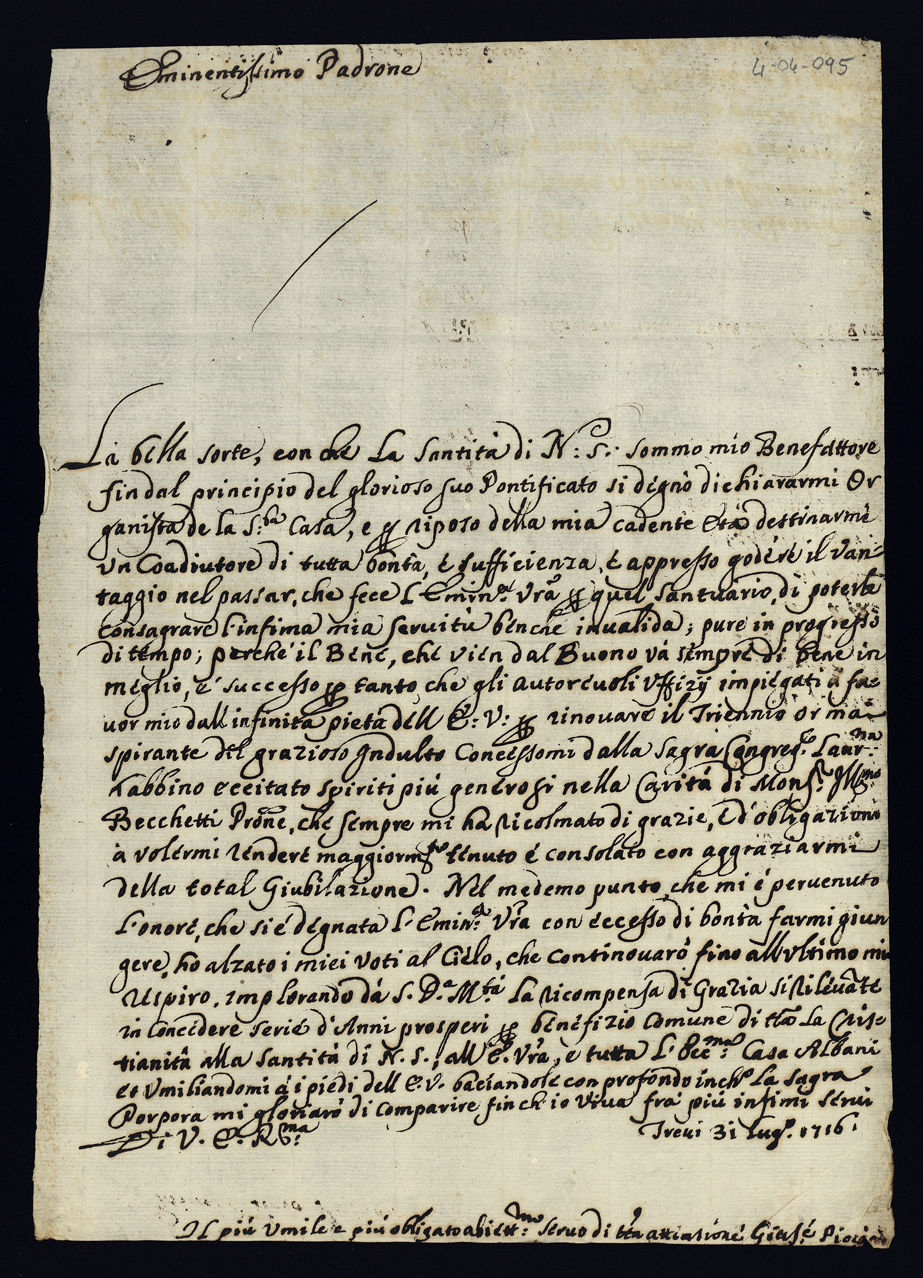 4-04-095
Eminentissimo Padrone
La bella sorte, con che La Santità di N: S.: sommo mio Benefattore
sin dal principio del glorioso suo Pontificato si degnò dichiararmi Or
ganista de la S.ta Casa, e ꝑ riposo della mia cadente età destinarmi
un Coadiutore di tutta bontà, è sufficienza, è appresso godere il van=
taggio nel passar, che fece l'Emin.a Vrã ꝑ quel Santuario, di poterle
consagrare l'infima mia servitù benche invalida; pure in progresso
di tempo; perche il Bene, che vien dal Buono và sempre di bene in
meglio, e' successo ꝑ tanto, che gli autorevoli Uffizij impiegati à fa=
vor mio dall'infinita pietà dell'E: V: ꝑ rinovare il Triennio or mai
spirante del grazioso Indulto Concessomi dalla Sagra Congreg.e Laur.na
habbino eccitato spiriti più generosi nella Carità di Mons.r Ill.mo
Becchetti Prone, che sempre mi ha ricolmato di grazie, è d'obligazioni
à volermi rendere maggiorm.te tenuto è consolato con aggraziarmi
della total Giubilazione. Nel medemo punto che mi è pervenuto
l'onore, che si è degnata l'Emin.a Vrã con eccesso di bontà farmi giun
gere, ho alzato i miei voti al Cielo, che continovarò fino all'ultimo mio
respiro, implorando dà S. D.a M.tà La ricompensa di Grazia si rilevante
in concedere serie d'Anni prosperi ꝑ benefizio comune di tta La Cris=
tianità alla Santità di N. S., all'E. Vrã, e tutta l'Ecc.ma Casa Albani
et umiliandomi à i piedi dell'E. V. baciandole con profondo inch.o La sagra
Porpora mi gloriarò di comparire finch'io viva frà più infimi servi
Di V. E. R.ma
Trevi 31 Lug.o 1716
Il più umile e più obligato ... servo di tta ... Gius.e